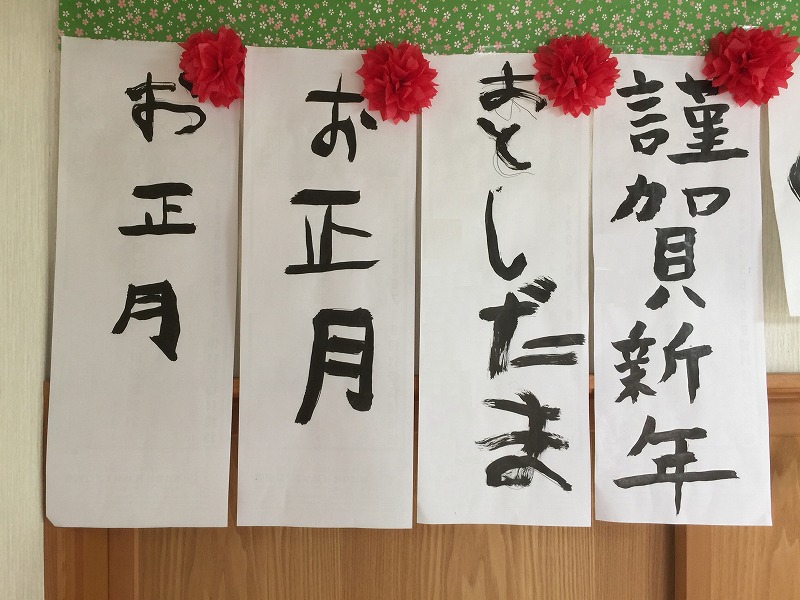 謹賀新年
おとしだま
お正月
お正月